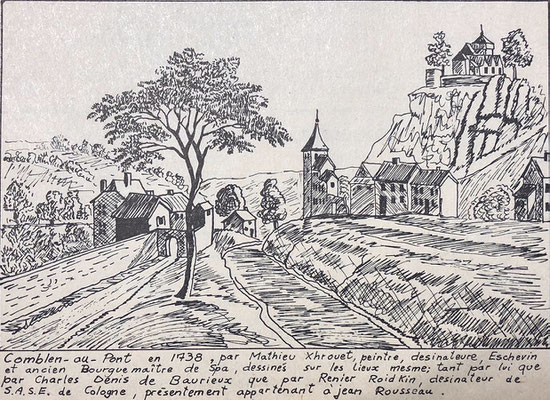 Comblen-au-Pont en 1738, par Mathieu Xhrouet, peintre, desinateure, Eschevin
et ancien Bourguemaitre de Spa, dessinés sur les lieux mesme; tant par lvi que
par Charles Dénis de Baurieux que par Renier Roidkin, desinateur de
S.A.S.E. de Cologne, présentement appartenant à jean Rousseau.